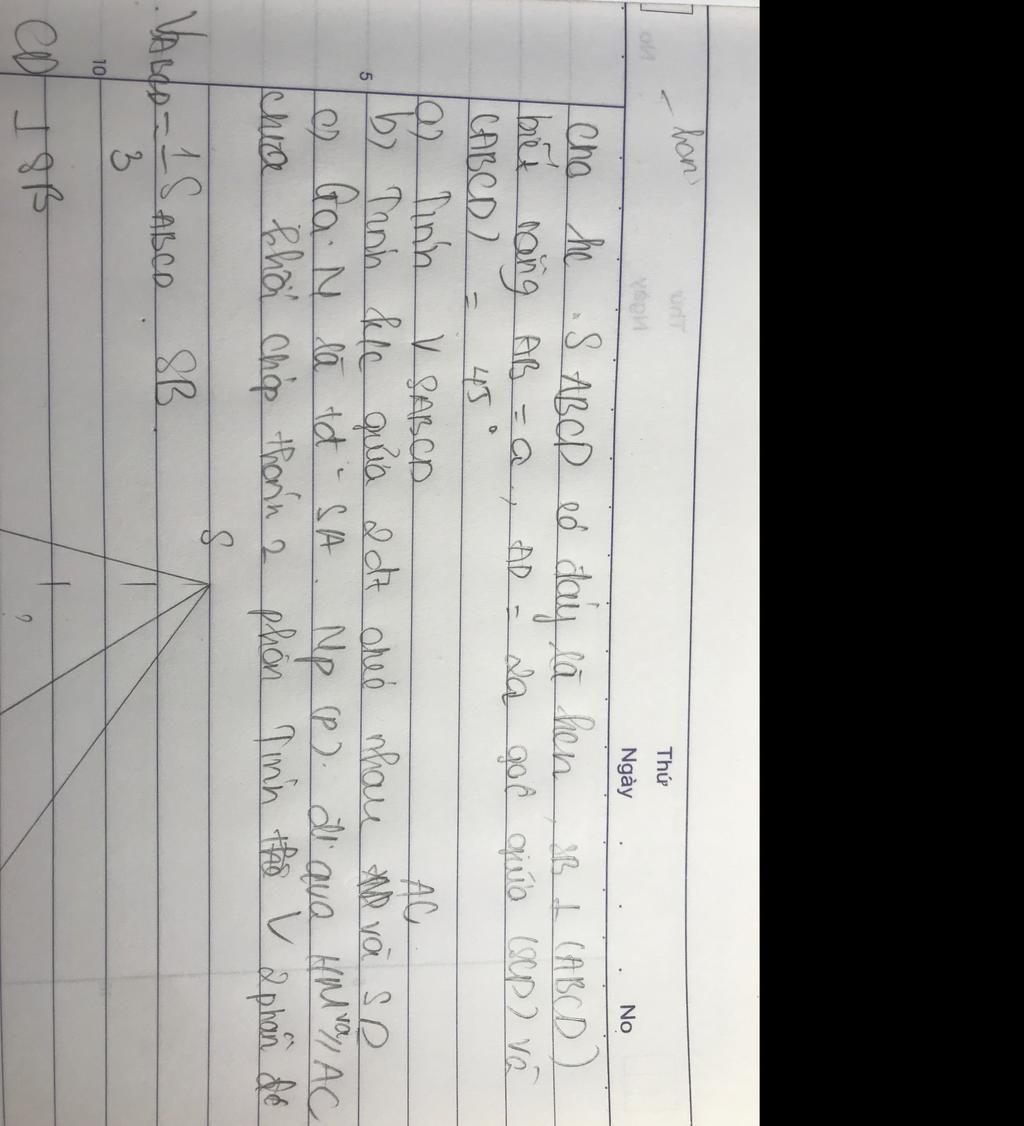 Thứ
Ngày
No
Cho hc .S ABCD có đáy là hcn, SB ⊥ (ABCD)
biết rằng AB = a, AD = 2a góc giữa (SCD) và
(ABCD) = 45°
a) Tính V SABCD
b) Tính k/c giữa 2 đt chéo nhau AC và SD
c) Gọi N là tđ SA. Mp (P) đi qua HM và // AC
chia khối chóp thành 2 phần Tính V 2 phần đó
5
S
VABCD = 1/3 S ABCD SB
10
CD ⊥ SB